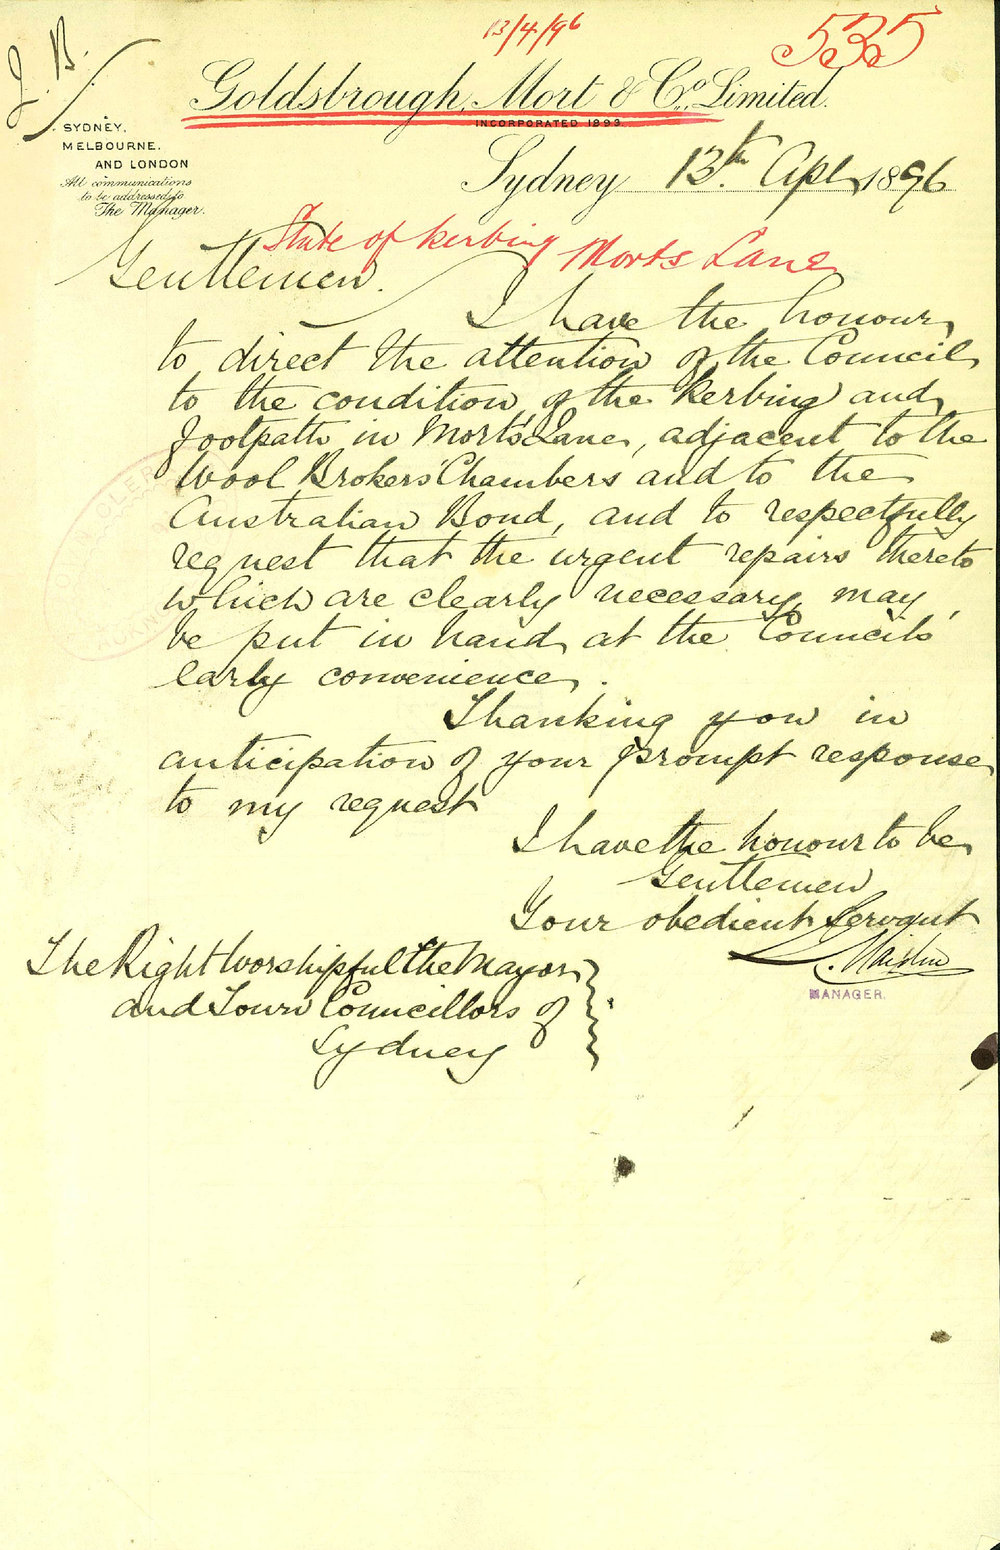 13/4/96
535
J. B.
Goldsbrough, Mort & Co., Limited.
INCORPORATED 1893.
SYDNEY,
MELBOURNE,
AND LONDON
All communications
to be addressed to
The Manager.
Sydney 13th Apl 1896
State of Kerbing Morts Lane
Gentlemen.
I have the honour
to direct the attention of the Council
to the condition of the kerbing and
footpath in Mort's Lane, adjacent to the
Wool Brokers' Chambers and to the
Australian Bond, and to respectfully
request that the urgent repairs thereto
which are clearly necessary, may
be put in hand at the Councils'
early convenience.
Thanking you in
anticipation of your prompt response
to my request
I have the honour to be
Gentlemen
Your obedient Servant
MANAGER.
The Right Worshipful The Mayor
and Town Councillors of
Sydney